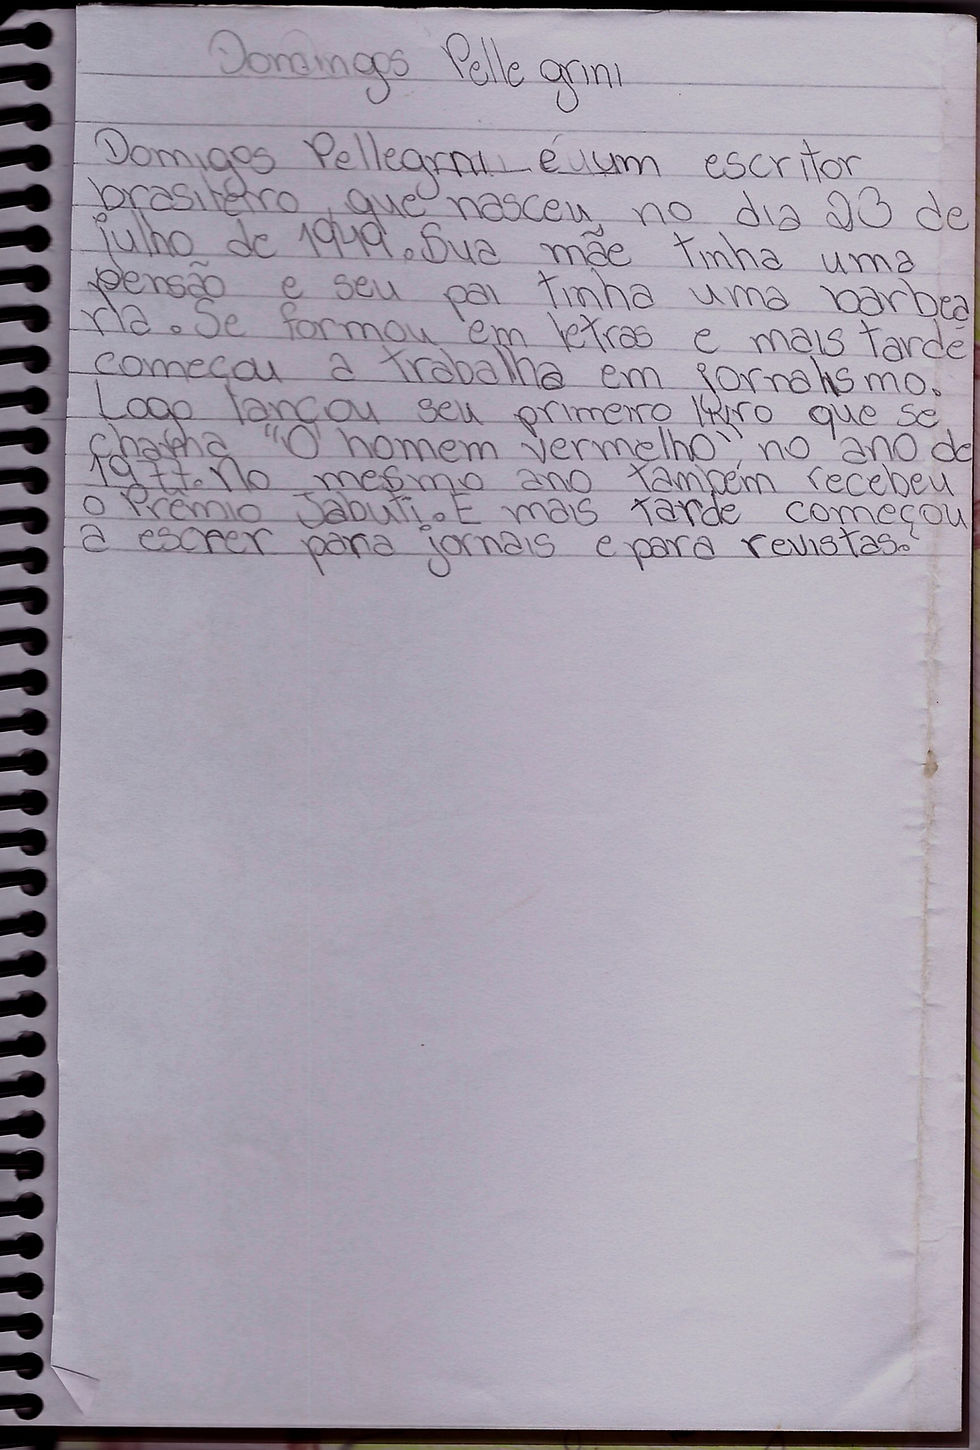 Domingos Pellegrini
Domigos Pellegrini é um escritor
brasileiro, que nasceu no dia 23 de
julho de 1949. Sua mãe tinha uma
pensão e seu pai tinha uma barbea
ria. Se formou em letras e mais tarde
começou a trabalha em jornalismo.
Logo lançou seu primeiro livro que se
chama "O homem vermelho" no ano de
1977. No mesmo ano também recebeu
o Prêmio Jabuti. E mais tarde começou
a escrer para jornais e para revistas.